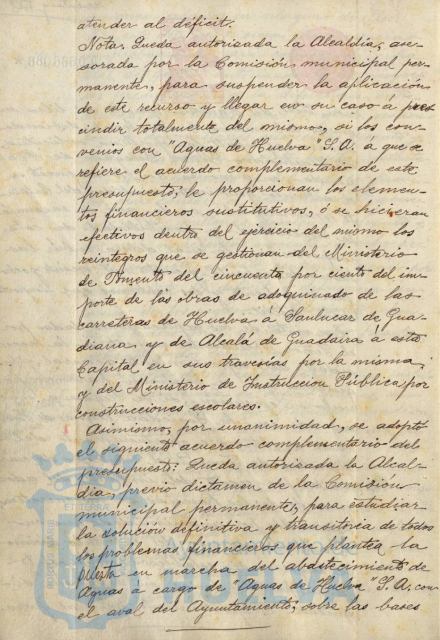 atender al déficit.
Nota. Queda autorizada la Alcaldía, ase-
sorada por la Comisión municipal per-
manente, para suspender la aplicación
de este recurso y llegar en su caso á pres-
cindir totalmente del mismo, si los con-
venios con "Aguas de Huelva" S.A. a que se
refiere el acuerdo complementario de este
presupuesto; le proporcionan los elemen-
tos financieros sustitutivos, ó se hicieran
efectivos dentro del ejercicio del mismo los
reintegros que se gestionan del Ministerio
de Fomento del cincuenta por ciento del im-
porte de las obras de adoquinado de las
carreteras de Huelva á Sanlucar de Gua-
diana y de Alcalá de Guadaira á esta
Capital en sus travesías por la misma,
y del Ministerio de Instruccion Pública, por
construcciones escolares.
Asimismo, por unanimidad, se adoptó
el siguiente acuerdo complementario del
presupuesto: Queda autorizada la Alcal-
día, previo dictamen de la Comisión
municipal permanente, para estudiar
la solución definitiva y transitoria de todos
los problemas financieros que plantea la
puesta en marcha del abastecimiento de
Aguas á cargo de "Aguas de Huelva" S.A. con
el aval del Ayuntamiento; sobre las bases